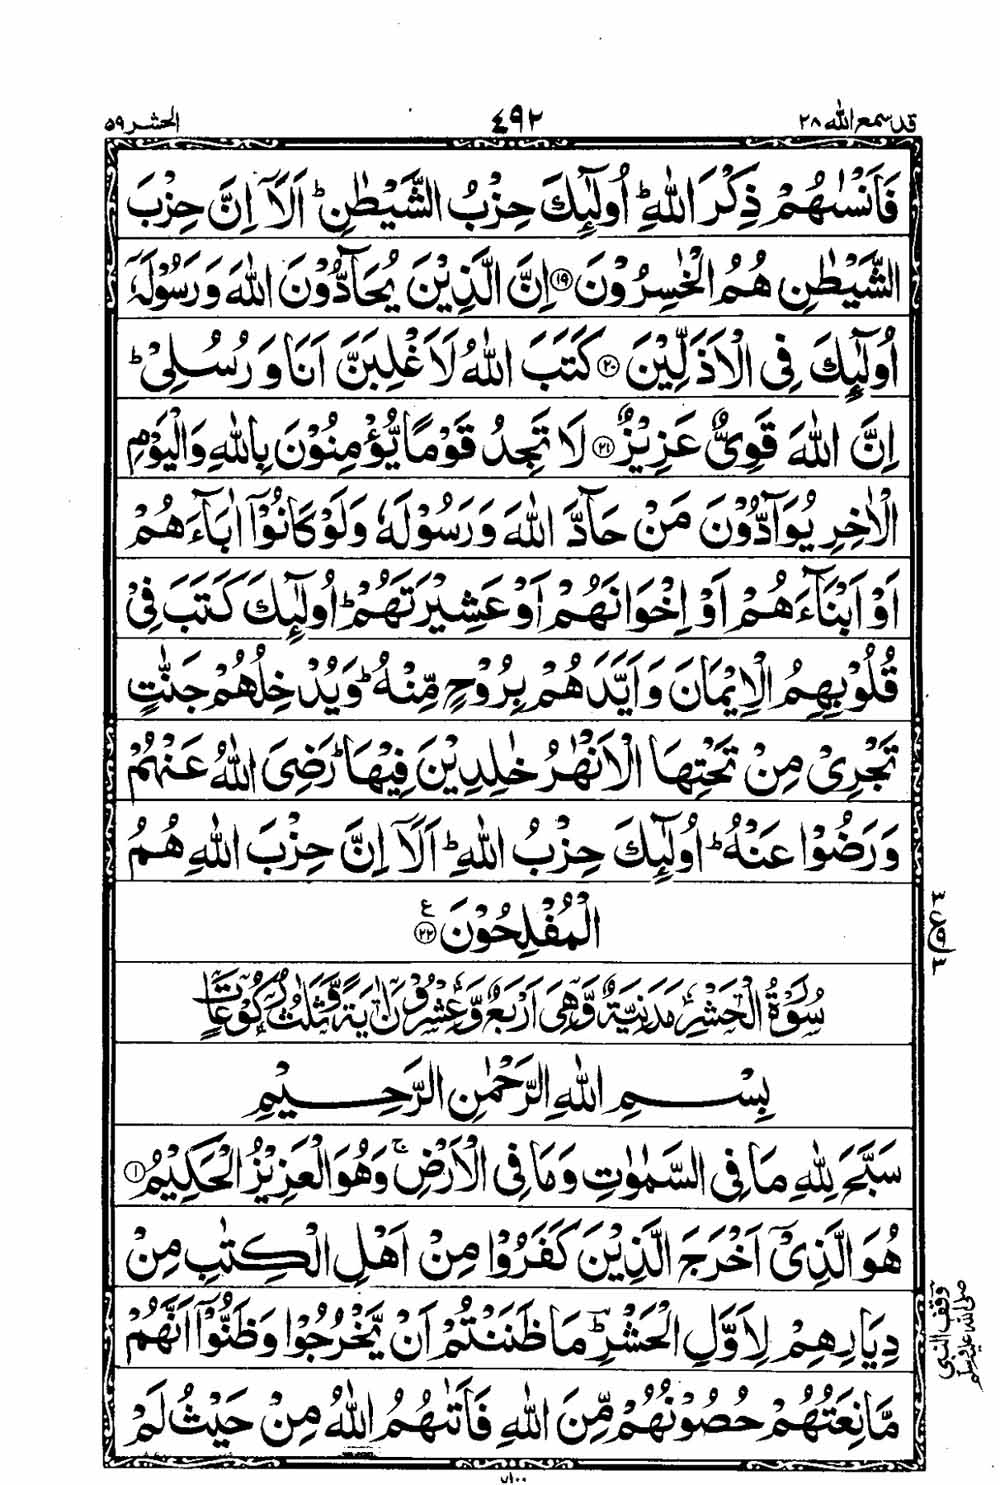 قد سمع الله ٢٨
٤٩٢
الحشر ٥٩
فَاَنْسٰىهُمْ ذِكْرَ اللّٰهِ ؕ اُولٰٓئِكَ حِزْبُ الشَّيْطٰنِ ؕ اَلَاۤ اِنَّ حِزْبَ
الشَّيْطٰنِ هُمُ الْخٰسِرُوْنَ ﴿۱۹﴾ اِنَّ الَّذِيْنَ يُحَآدُّوْنَ اللّٰهَ وَرَسُوْلَهٗۤ
اُولٰٓئِكَ فِى الْاَذَلِّيْنَ ﴿۲۰﴾ كَتَبَ اللّٰهُ لَاَغْلِبَنَّ اَنَا وَرُسُلِىْ ؕ
اِنَّ اللّٰهَ قَوِىٌّ عَزِيْزٌ ﴿۲۱﴾ لَا تَجِدُ قَوْمًا يُّؤْمِنُوْنَ بِاللّٰهِ وَالْيَوْمِ
الْاٰخِرِ يُوَآدُّوْنَ مَنْ حَآدَّ اللّٰهَ وَرَسُوْلَهٗ وَلَوْ كَانُوْۤا اٰبَآءَهُمْ
اَوْ اَبْنَآءَهُمْ اَوْ اِخْوَانَهُمْ اَوْ عَشِيْرَتَهُمْ ؕ اُولٰٓئِكَ كَتَبَ فِىْ
قُلُوْبِهِمُ الْاِيْمَانَ وَاَيَّدَهُمْ بِرُوْحٍ مِّنْهُ ؕ وَيُدْخِلُهُمْ جَنّٰتٍ
تَجْرِىْ مِنْ تَحْتِهَا الْاَنْهٰرُ خٰلِدِيْنَ فِيْهَا ؕ رَضِىَ اللّٰهُ عَنْهُمْ
وَرَضُوْا عَنْهُ ؕ اُولٰٓئِكَ حِزْبُ اللّٰهِ ؕ اَلَاۤ اِنَّ حِزْبَ اللّٰهِ هُمُ
الْمُفْلِحُوْنَ ﴿۲۲﴾ ع
سُوْرَةُ الْحَشْرِ مَدَنِيَّةٌ وَّهِىَ اَرْبَعٌ وَّعِشْرُوْنَ اٰيَةً وَّثَلٰثُ رُكُوْعَاتٍ
بِسْمِ اللّٰهِ الرَّحْمٰنِ الرَّحِيْمِ
سَبَّحَ لِلّٰهِ مَا فِى السَّمٰوٰتِ وَمَا فِى الْاَرْضِ ۚ وَهُوَ الْعَزِيْزُ الْحَكِيْمُ ﴿۱﴾
هُوَ الَّذِىْۤ اَخْرَجَ الَّذِيْنَ كَفَرُوْا مِنْ اَهْلِ الْكِتٰبِ مِنْ
دِيَارِهِمْ لِاَوَّلِ الْحَشْرِ ؔؕ مَا ظَنَنْتُمْ اَنْ يَّخْرُجُوْا وَظَنُّوْۤا اَنَّهُمْ
مَّانِعَتُهُمْ حُصُوْنُهُمْ مِّنَ اللّٰهِ فَاَتٰىهُمُ اللّٰهُ مِنْ حَيْثُ لَمْ
وقف النبى
صلى الله عليه وسلم